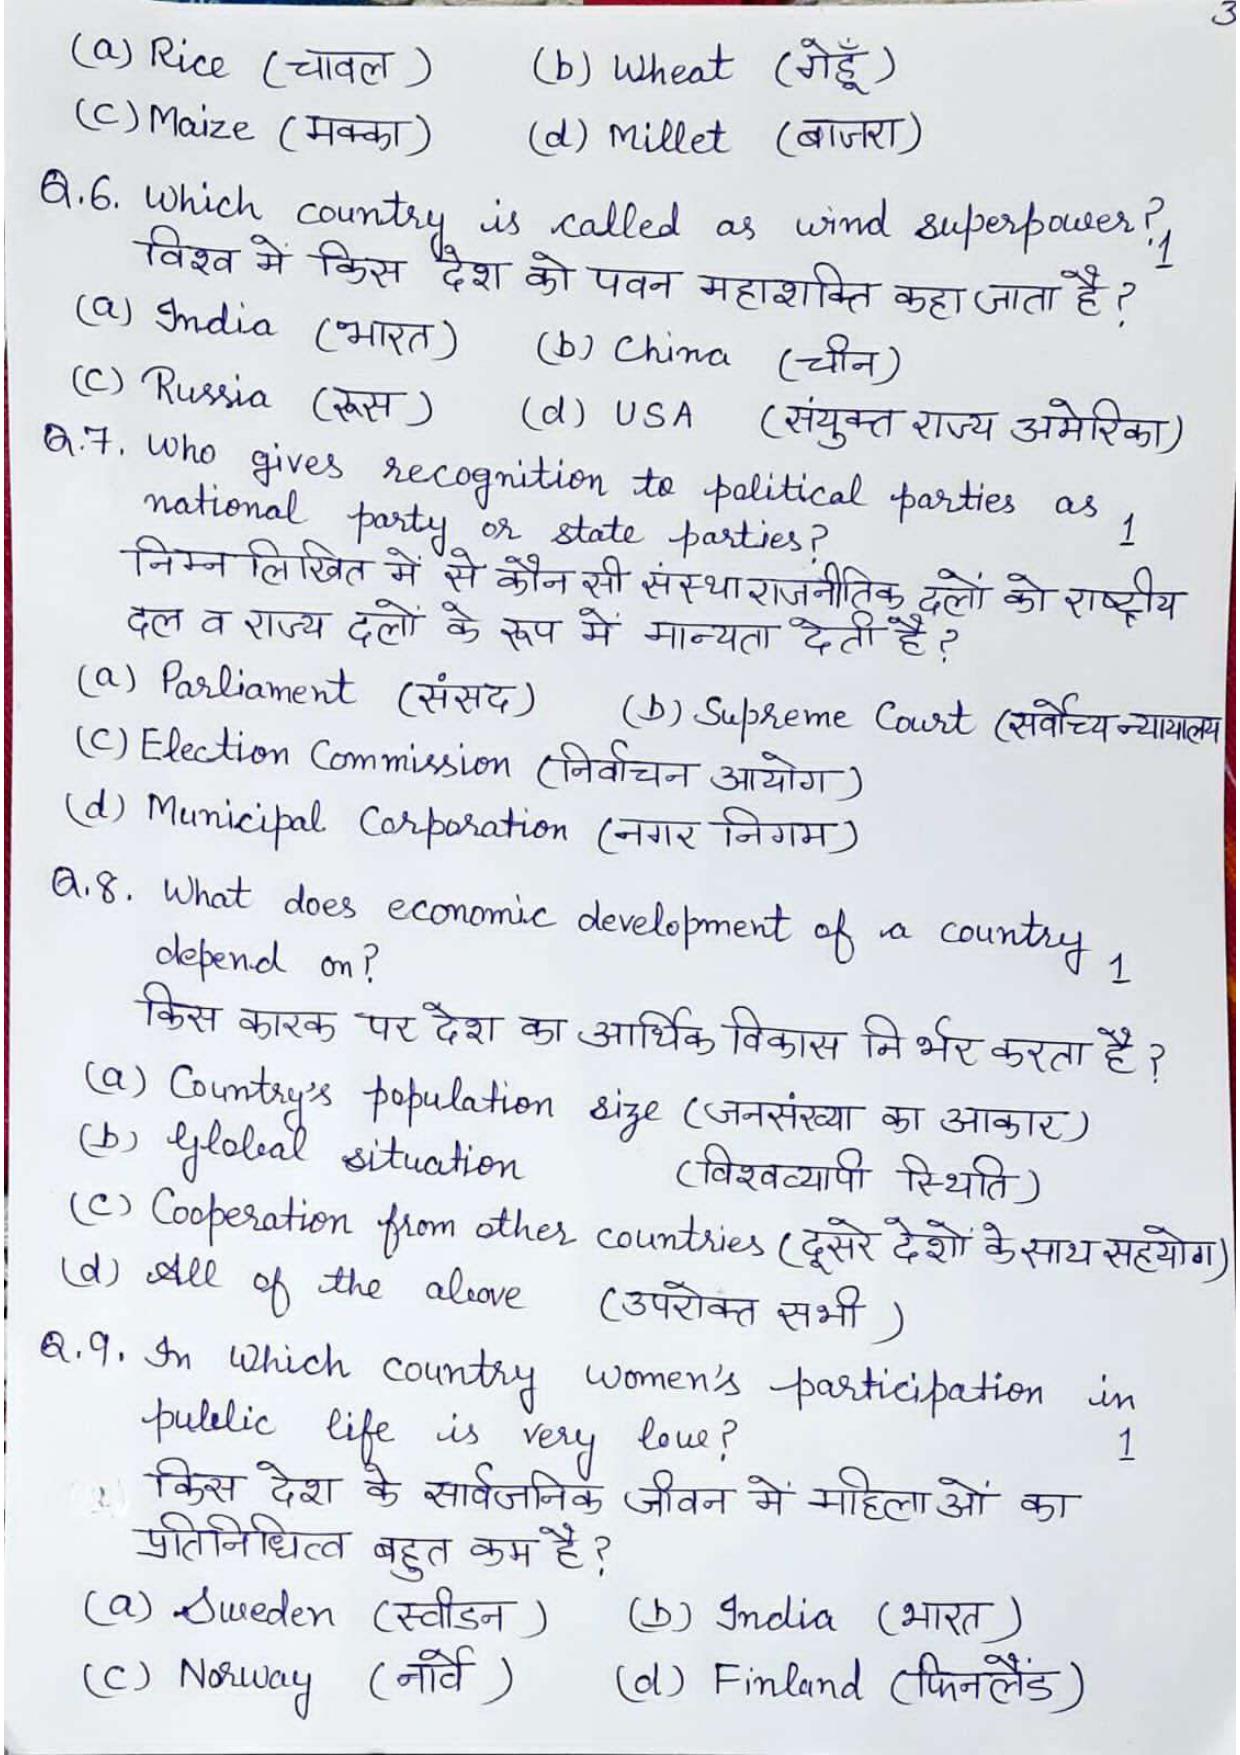 3
(a) Rice (चावल) (b) Wheat (गेहूँ)
(c) Maize (मक्का) (d) Millet (बाजरा)
Q.6. Which country is called as wind superpower? 1
विश्व में किस देश को पवन महाशक्ति कहा जाता है?
(a) India (भारत) (b) China (चीन)
(c) Russia (रूस) (d) USA (संयुक्त राज्य अमेरिका)
Q.7. Who gives recognition to political parties as
national party or state parties? 1
निम्नलिखित में से कौन सी संस्था राजनीतिक दलों को राष्ट्रीय
दल व राज्य दलों के रूप में मान्यता देती है?
(a) Parliament (संसद) (b) Supreme Court (सर्वोच्य न्यायालय
(c) Election Commission (निर्वाचन आयोग)
(d) Municipal Corporation (नगर निगम)
Q.8. What does economic development of a country
depend on? 1
किस कारक पर देश का आर्थिक विकास निर्भर करता है?
(a) Country's population size (जनसंख्या का आकार)
(b) Global situation (विश्वव्यापी स्थिति)
(c) Cooperation from other countries (दूसरे देशों के साथ सहयोग)
(d) All of the above (उपरोक्त सभी)
Q.9. In which country women's participation in
public life is very low? 1
किस देश के सार्वजनिक जीवन में महिलाओं का
प्रतिनिधित्व बहुत कम है?
(a) Sweden (स्वीडन) (b) India (भारत)
(c) Norway (नॉर्वे) (d) Finland (फिनलैंड)